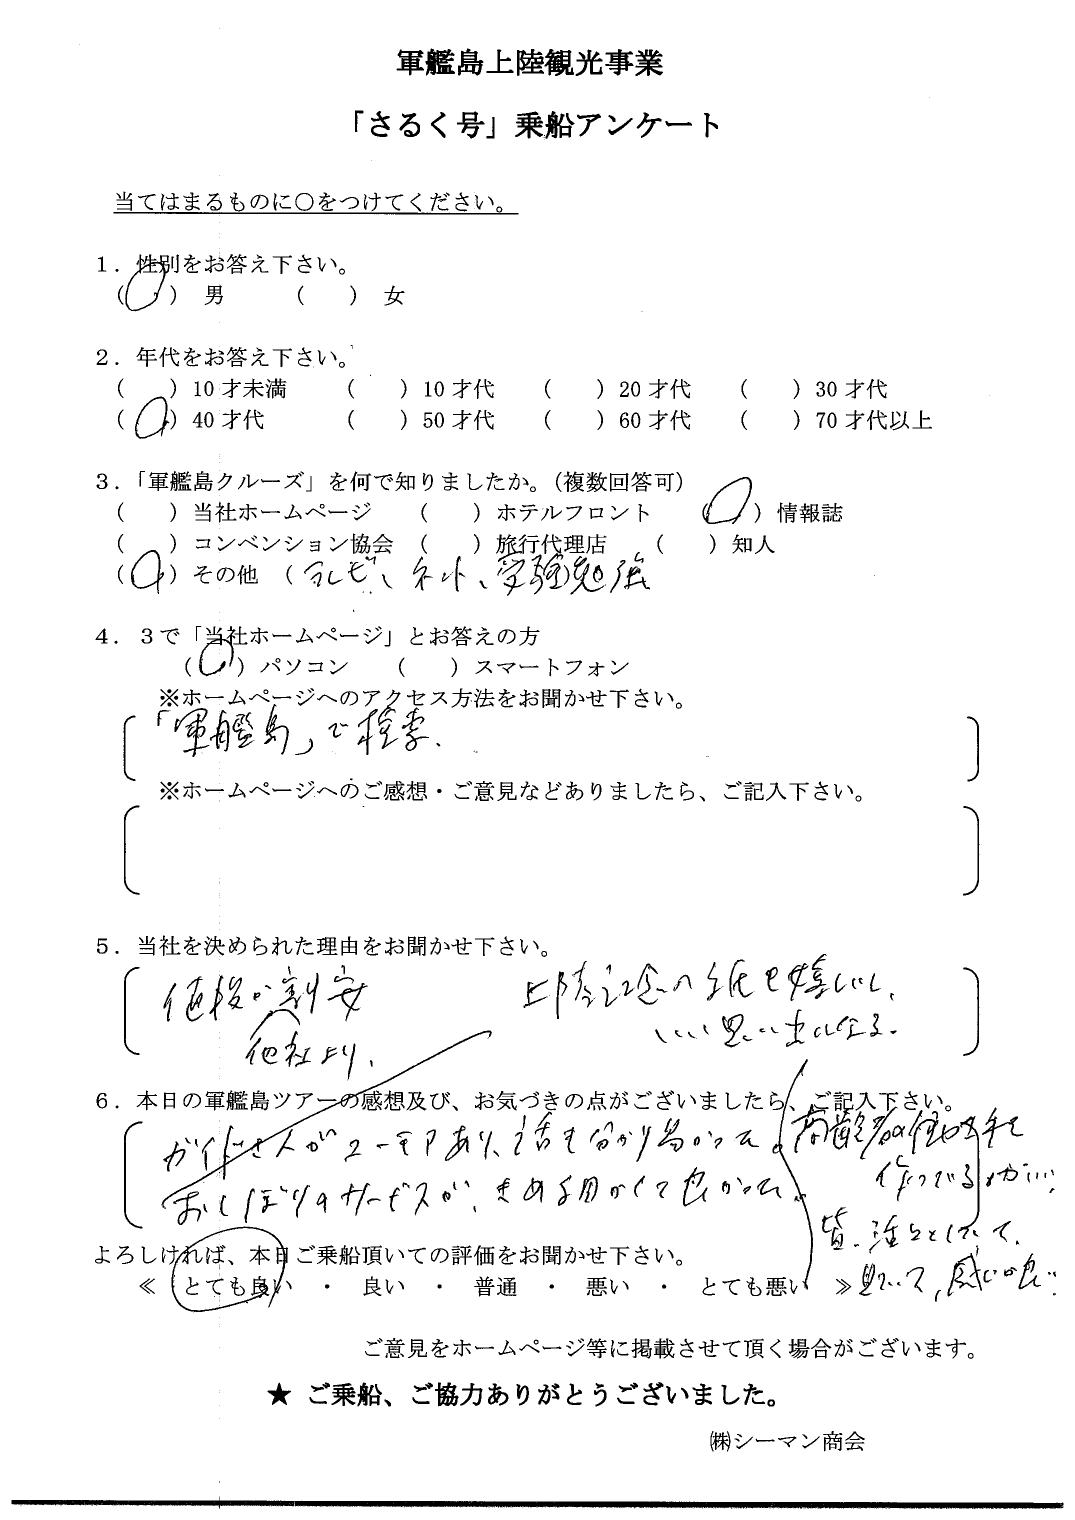 軍艦島上陸観光事業
「さるく号」乗船アンケート
当てはまるものに○をつけてください。
1．性別をお答え下さい。
(　　) 男　　　(　　) 女
2．年代をお答え下さい。
(　　) 10才未満　　(　　) 10才代　　(　　) 20才代　　(　　) 30才代
(　　) 40才代　　(　　) 50才代　　(　　) 60才代　　(　　) 70才代以上
3．「軍艦島クルーズ」を何で知りましたか。（複数回答可）
(　　) 当社ホームページ　　(　　) ホテルフロント　　(　　) 情報誌
(　　) コンベンション協会　(　　) 旅行代理店　　(　　) 知人
(　　) その他　( テレビ、ネット、受験勉強
4．3で「当社ホームページ」とお答えの方
(　　) パソコン　　(　　) スマートフォン
※ホームページへのアクセス方法をお聞かせ下さい。
「軍艦島」で検索.
※ホームページへのご感想・ご意見などありましたら、ご記入下さい。
5．当社を決められた理由をお聞かせ下さい。
値段が割安
他社より.
上陸記念の紙も嬉しいし、
いい思い出になる.
6．本日の軍艦島ツアーの感想及び、お気づきの点がございましたら、ご記入下さい。
ガイドさんがユーモアあり、話も分かり易かった。
おしぼりのサービスが、きめ細かくて良かった。
高齢者の働き手を
作ってるのがいい.
皆、活々としていて、
見ていて、感じが良い.
よろしければ、本日ご乗船頂いての評価をお聞かせ下さい。
≪　とても良い　・　良い　・　普通　・　悪い　・　とても悪い　≫
ご意見をホームページ等に掲載させて頂く場合がございます。
★ ご乗船、ご協力ありがとうございました。
㈱シーマン商会